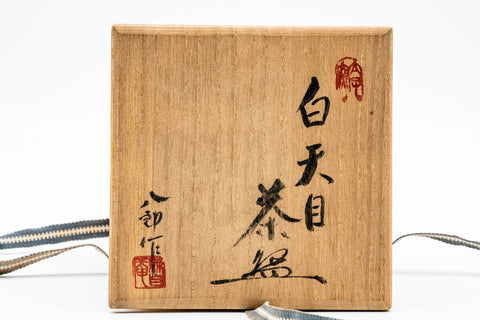 白天目
茶盌
八郎作